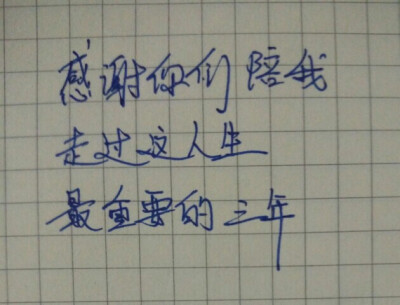 感谢你们陪我
走过这人生
最重要的三年